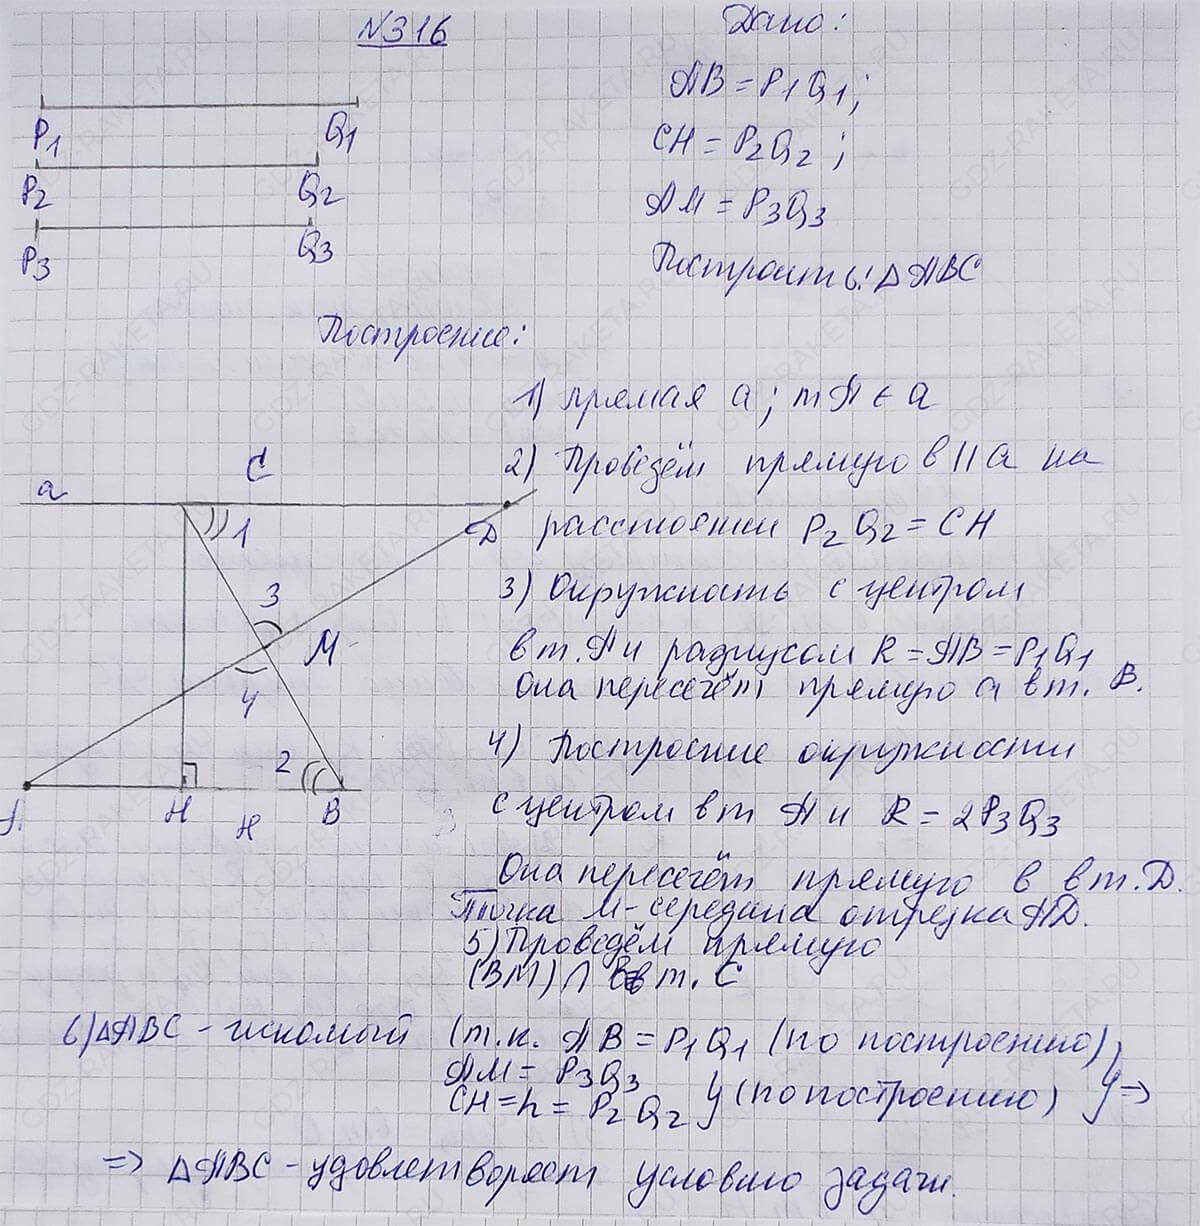 №316
Дано:
P1 Q1
AB = P1Q1;
P2 Q2
CH = P2Q2;
P3 Q3
AM = P3Q3
Построить: △ABC
Построение:
1) прямая a; т A ∈ a
2) Проведём прямую в || a на
расстоянии P2Q2 = CH
3) Окружность с центром
в т. A и радиусом R = AB = P1Q1
Она пересечёт прямую a в т. B.
4) Построение окружности
с центром в т A и R = 2P3Q3
Она пересечёт прямую в в т. Д.
Точка M - середина отрезка AД.
5) Проведём прямую
(BM) ∩ в в т. C
a C
1 Д
3 M
4
2
A H B
H
6) △ABC - искомый (т.к. AB = P1Q1 (по построению)
AM = P3Q3
CH = h = P2Q2 } (по построению) } =>
=> △ABC - удовлетворяет условию задачи.
GDZ-RAKETA.RU